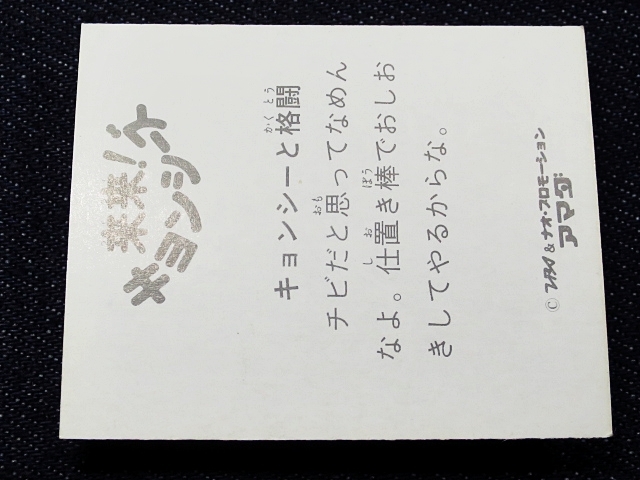 来来!
キョンシーズ
キョンシーと格闘
かくとう
チビだと思ってなめん
おも
なよ。仕置き棒でおしお
しお
ぼう
きしてやるからな。
© フカイ&ナオ・プロモーション
アマダ